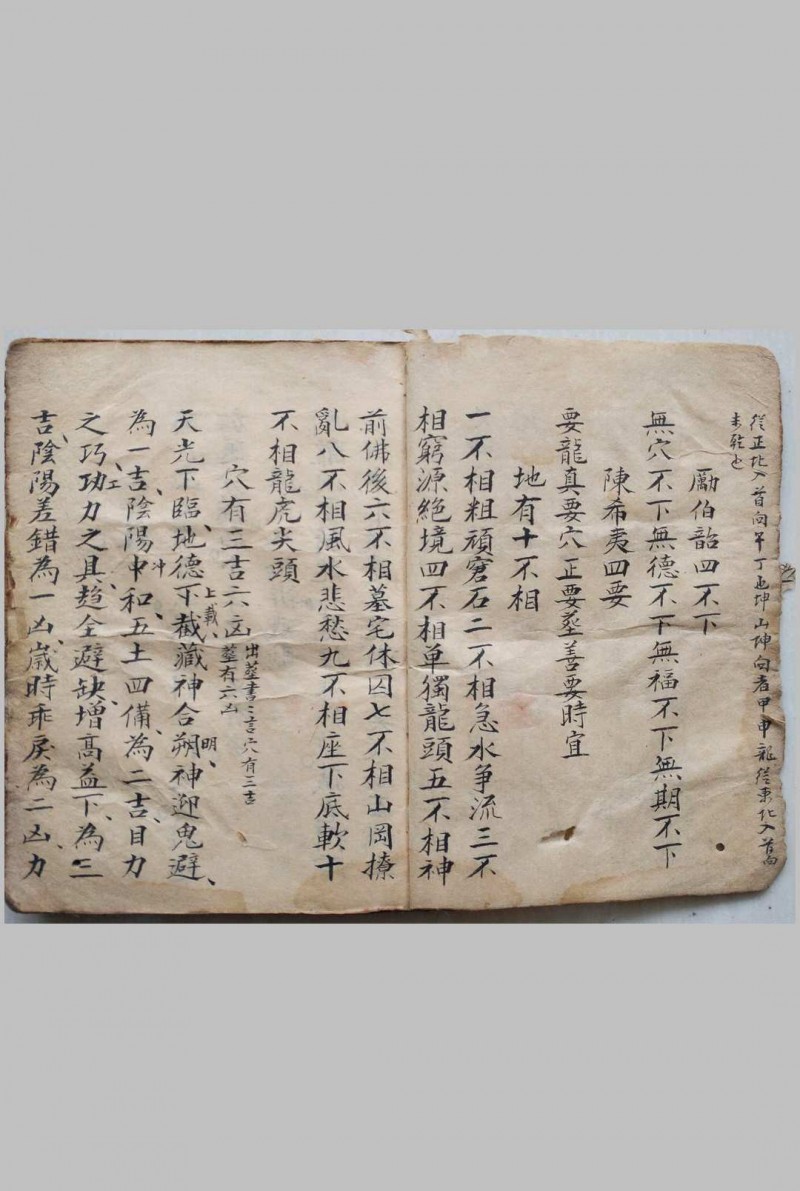 從正北入首向午丁也坤山坤向者甲申龍從東北入首向
未矣也
勵伯韶四不下
無穴不下無德不下無福不下無期不下
陳希夷四要
要龍真要穴正要塟善要時宜
地有十不相
一不相粗頑窘石二不相急水爭流三不
相窮源絶境四不相单獨龍頭五不相神
前佛後六不相墓宅休囚七不相山岡撩
亂八不相風水悲愁九不相座下底軟十
不相龍虎尖頭
穴有三吉六凶出塟書言穴有三吉塟有六凶
天光下臨、地德下上載、截藏神合朔明、神迎鬼避、
為一吉、陰陽中冲和、五土四備、為二吉、目力
之巧、功工力之具、趋全避缺、增高益下、為三
吉、陰陽差錯為一凶、歲時乖戾為二凶、力